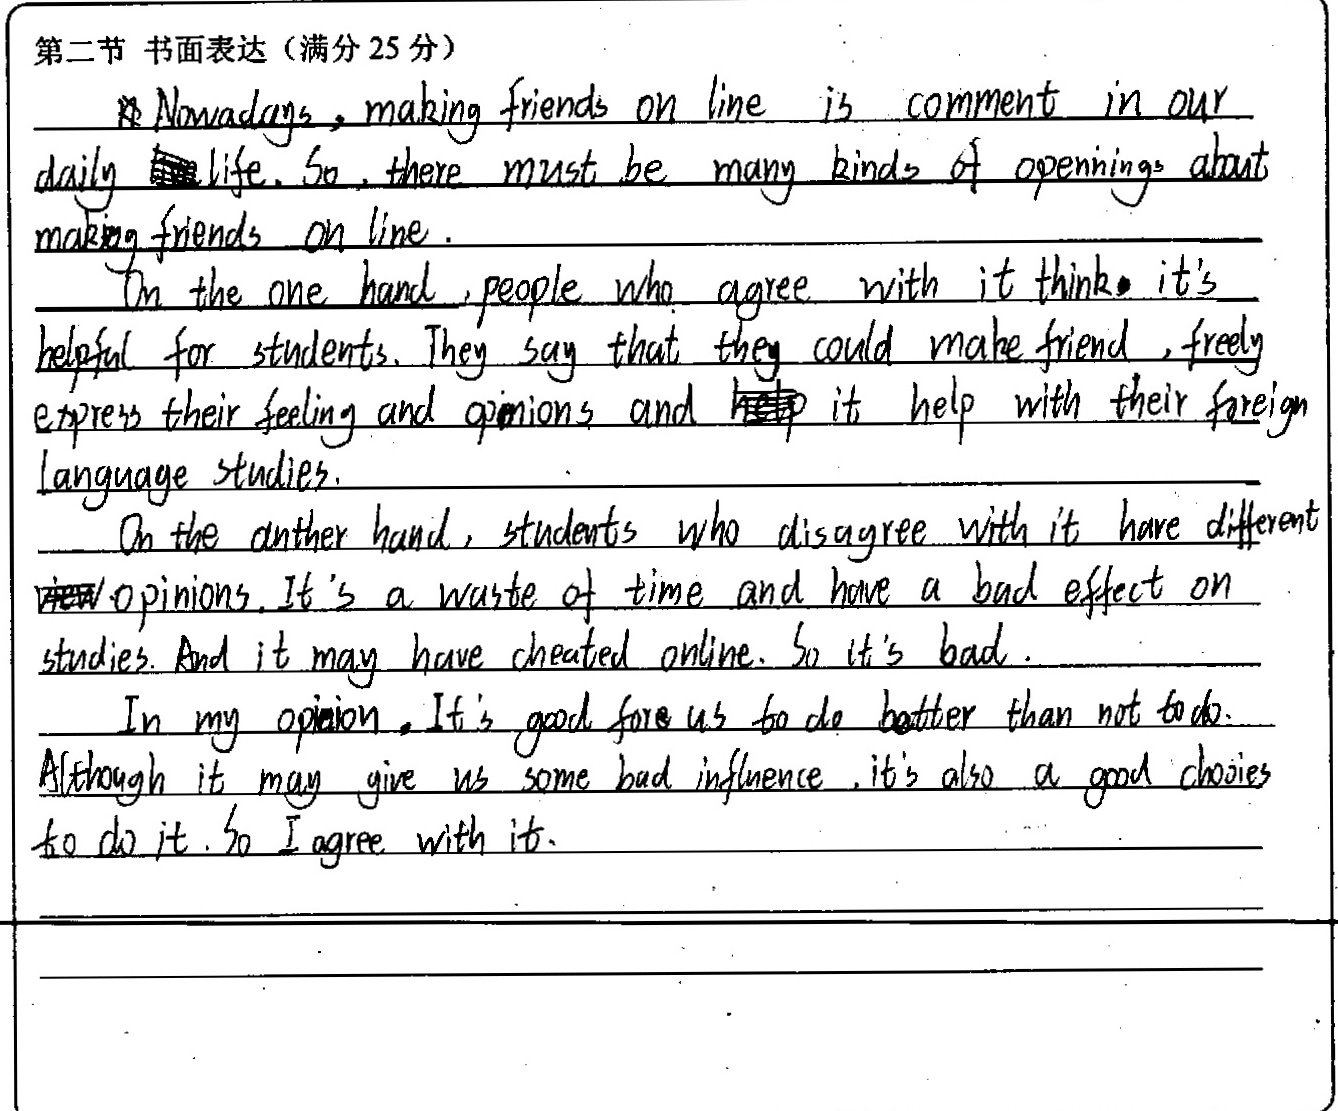 第二节 书面表达（满分 25 分）
Nowadays, making friends on line is comment in our
daily life. So, there must be many kinds of opennings about
making friends on line.
On the one hand, people who agree with it think it's
helpful for students. They say that they could make friend, freely
express their feeling and opinions and it help with their foreign
language studies.
On the anther hand, students who disagree with it have different
opinions. It's a waste of time and have a bad effect on
studies. And it may have cheated online. So it's bad.
In my opinion, It's good fore us to do better than not to do.
Although it may give us some bad influence, it's also a good chooies
to do it. So I agree with it.